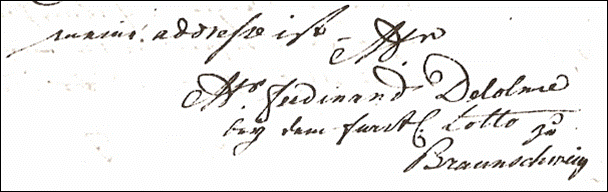 meine addresse ist Mr
Mr. Ferdinand Delolme
bey dem fürstl. Lotto zu
Braunschweig